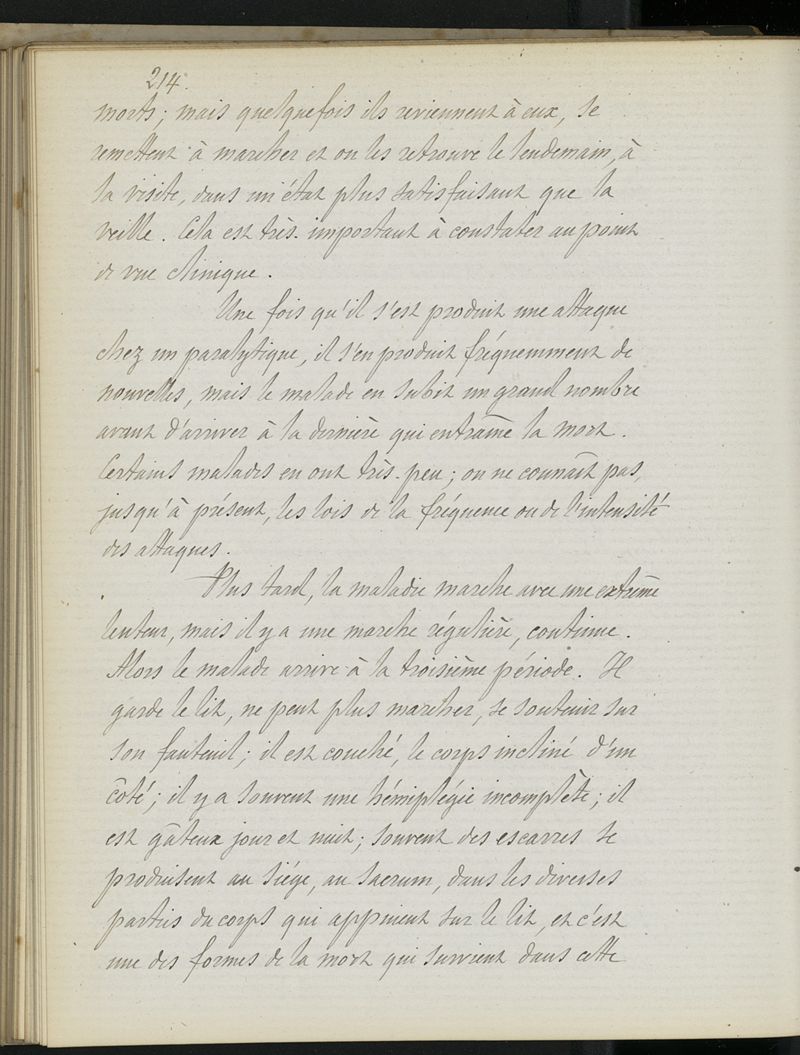 214.
morts; mais quelquefois ils reviennent à eux, se
remettent à marcher et on les retrouve le lendemain, à
la visite, dans un état plus satisfaisant que la
veille. Cela est très-important à constater au point
de vue clinique.
Une fois qu'il s'est produit une attaque
chez un paralytique, il s'en produit fréquemment de
nouvelles, mais le malade en subit un grand nombre
avant d'arriver à la dernière qui entraîne la mort.
Certains malades en ont très-peu; on ne connaît pas,
jusqu'à présent, les lois de la fréquence ou de l'intensité
des attaques.
Plus tard, la maladie marche avec une extrême
lenteur, mais il y a une marche régulière, continue.
Alors le malade arrive à la troisième période. Il
garde le lit, ne peut plus marcher, se soutenir sur
son fauteuil; il est couché, le corps incliné d'un
côté; il y a souvent une hémiplégie incomplète; il
est gâteux jour et nuit; souvent des escarres se
produisent au siége, au sacrum, dans les diverses
parties du corps qui appuient sur le lit, et c'est
une des formes de la mort qui survient dans cette